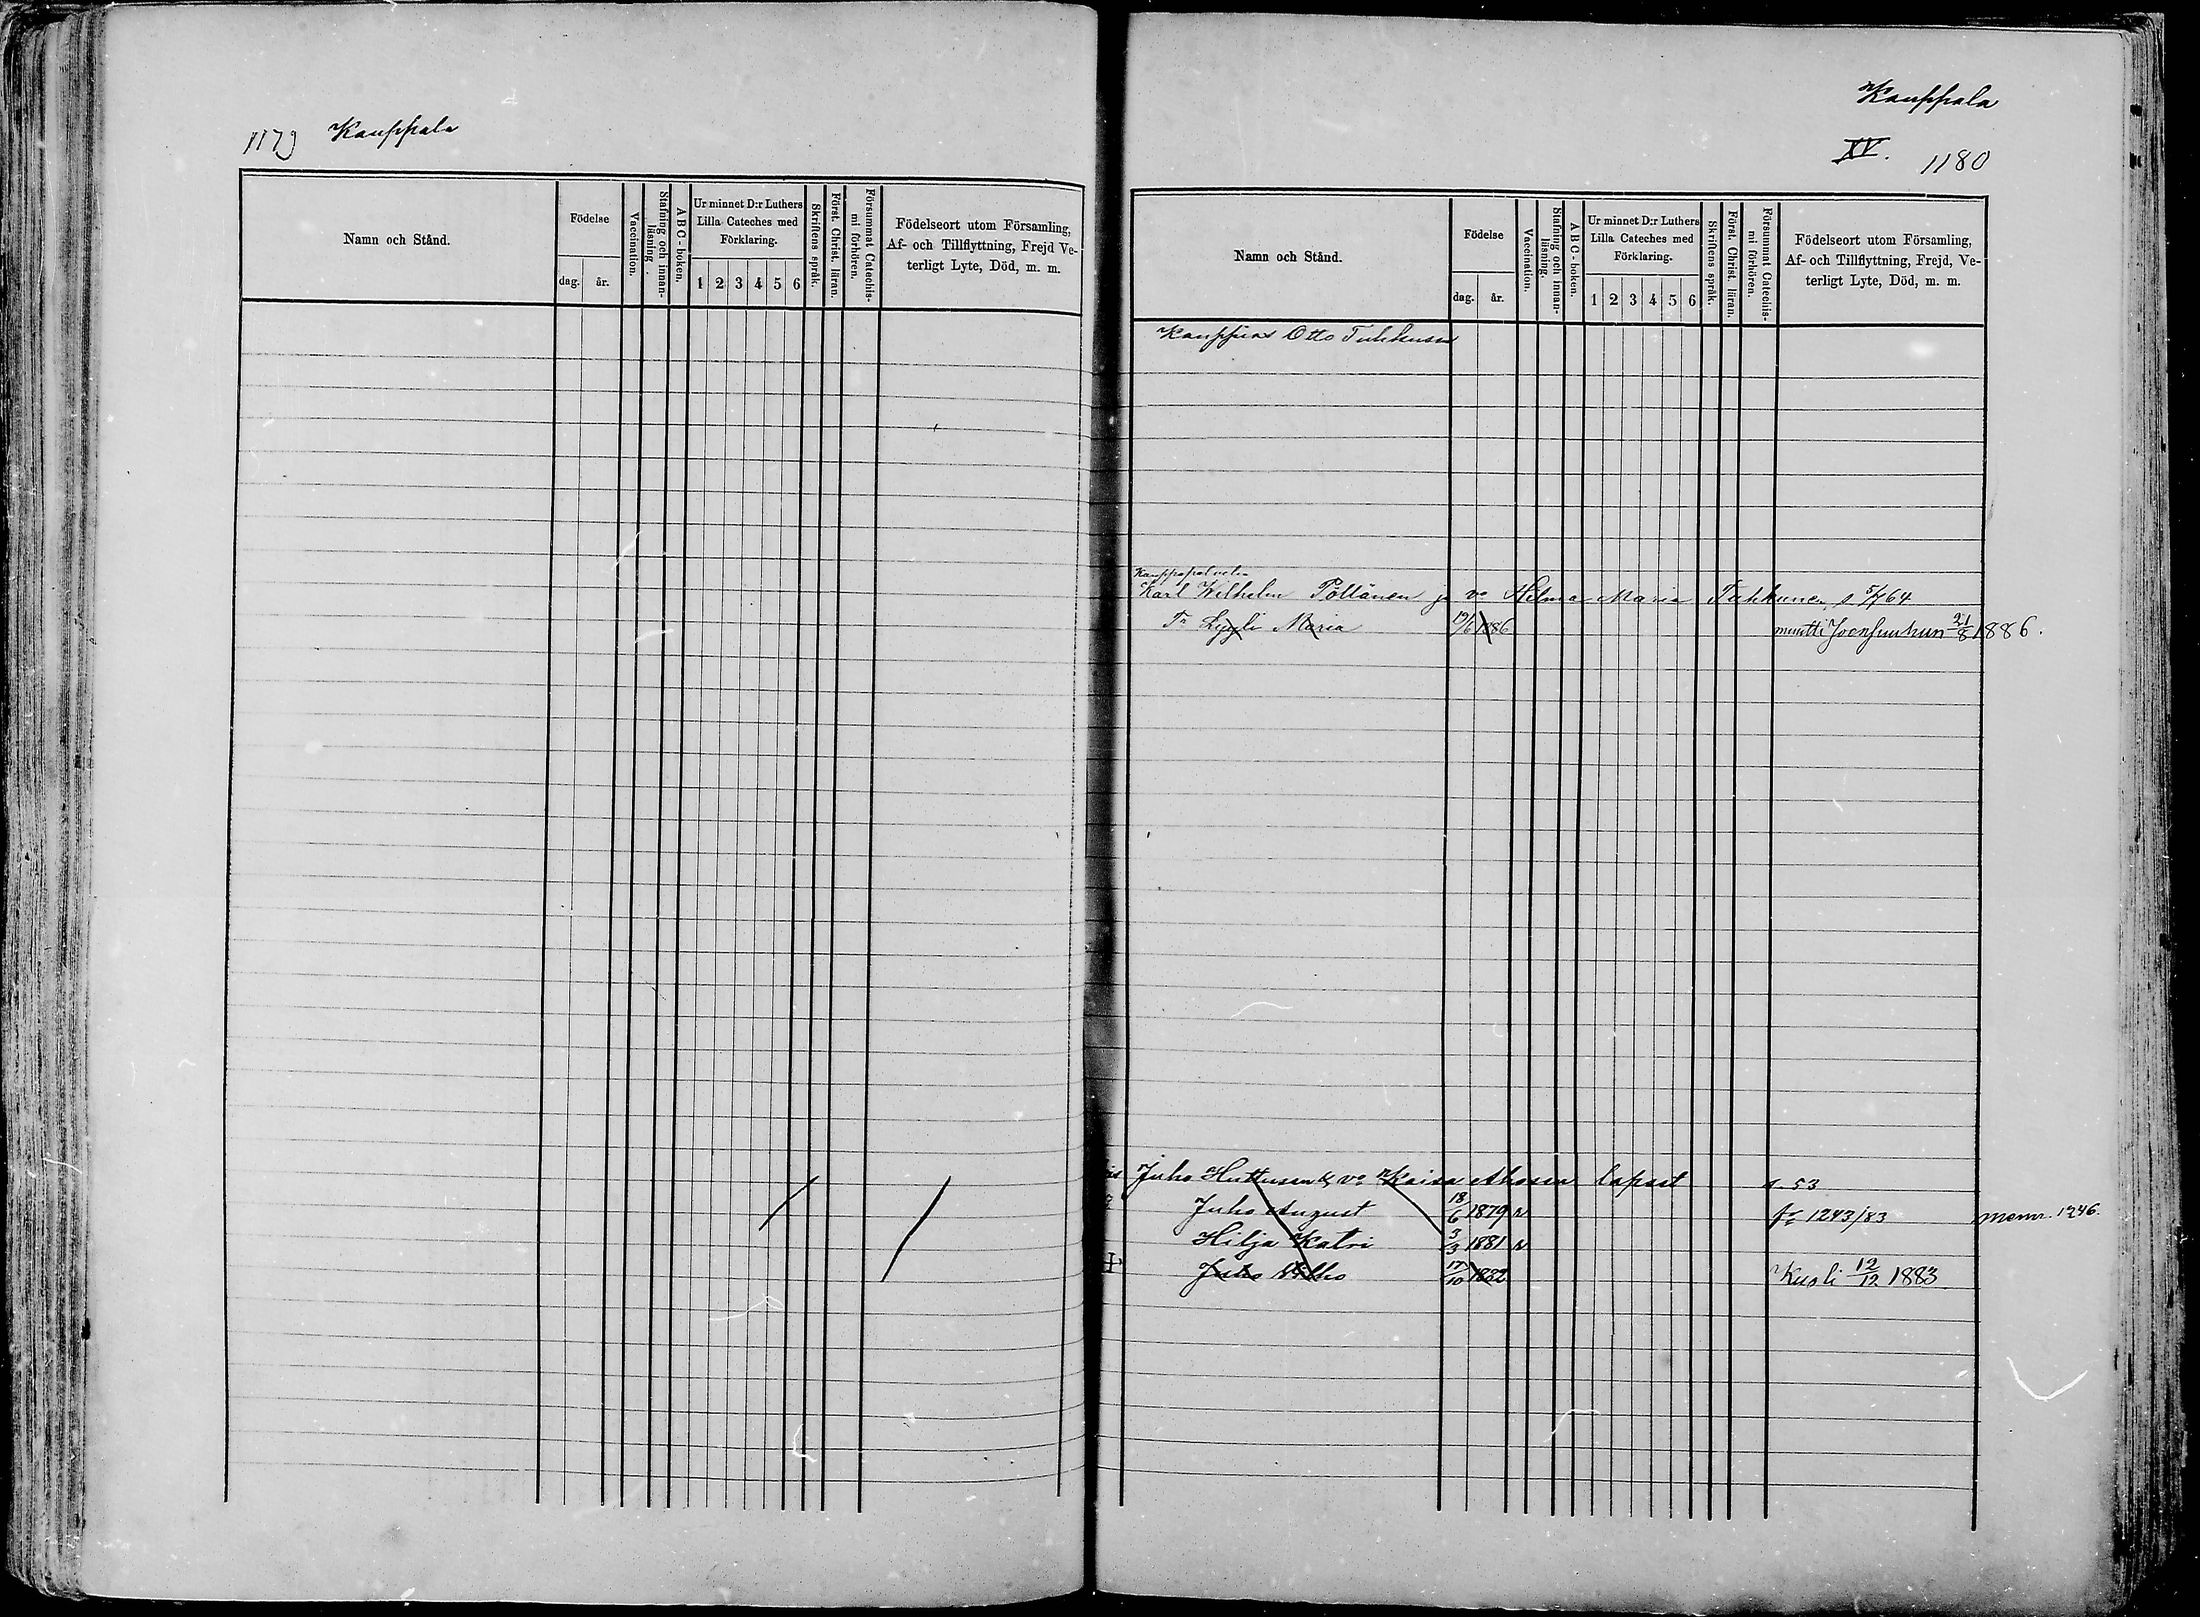 1179 Kauppala
Namn och Stånd.
Födelse
dag. år.
Vaccination.
Stafning och innan-läsning.
ABC-boken.
Ur minnet D:r Luthers
Lilla Cateches med
Förklaring.
1 2 3 4 5 6
Skriftens språk.
Först. Christ. läran.
Försummat Catechis-mi förhören.
Födelseort utom Församling,
Af- och Tillflyttning, Frejd Ve-
terligt Lyte, Död, m. m.
Kauppala
XV. 1180
Namn och Stånd.
Födelse
dag. år.
Vaccination.
Stafning och innan-läsning.
ABC-boken.
Ur minnet D:r Luthers
Lilla Cateches med
Förklaring.
1 2 3 4 5 6
Skriftens språk.
Först. Christ. läran.
Försummat Catechis-mi förhören.
Födelseort utom Församling,
Af- och Tillflyttning, Frejd, Ve-
terligt Lyte, Död, m. m.
Kauppias Otto Tuhkunen
Karl Wilhelm Pöllänen ja vo Hilma Maria Tuhkunen
Tr Lyyli Maria 1886 muutti Joensuuhun 21/8 1886.
Juho Huttusen & vo Kaisa Ahosen lapset s. 53
Juho August 18/6 1879 1243/83 mem. 1246.
Hilja Katri 1881
Juho Vilho 17/10 1882 Kuoli 12/12 1883